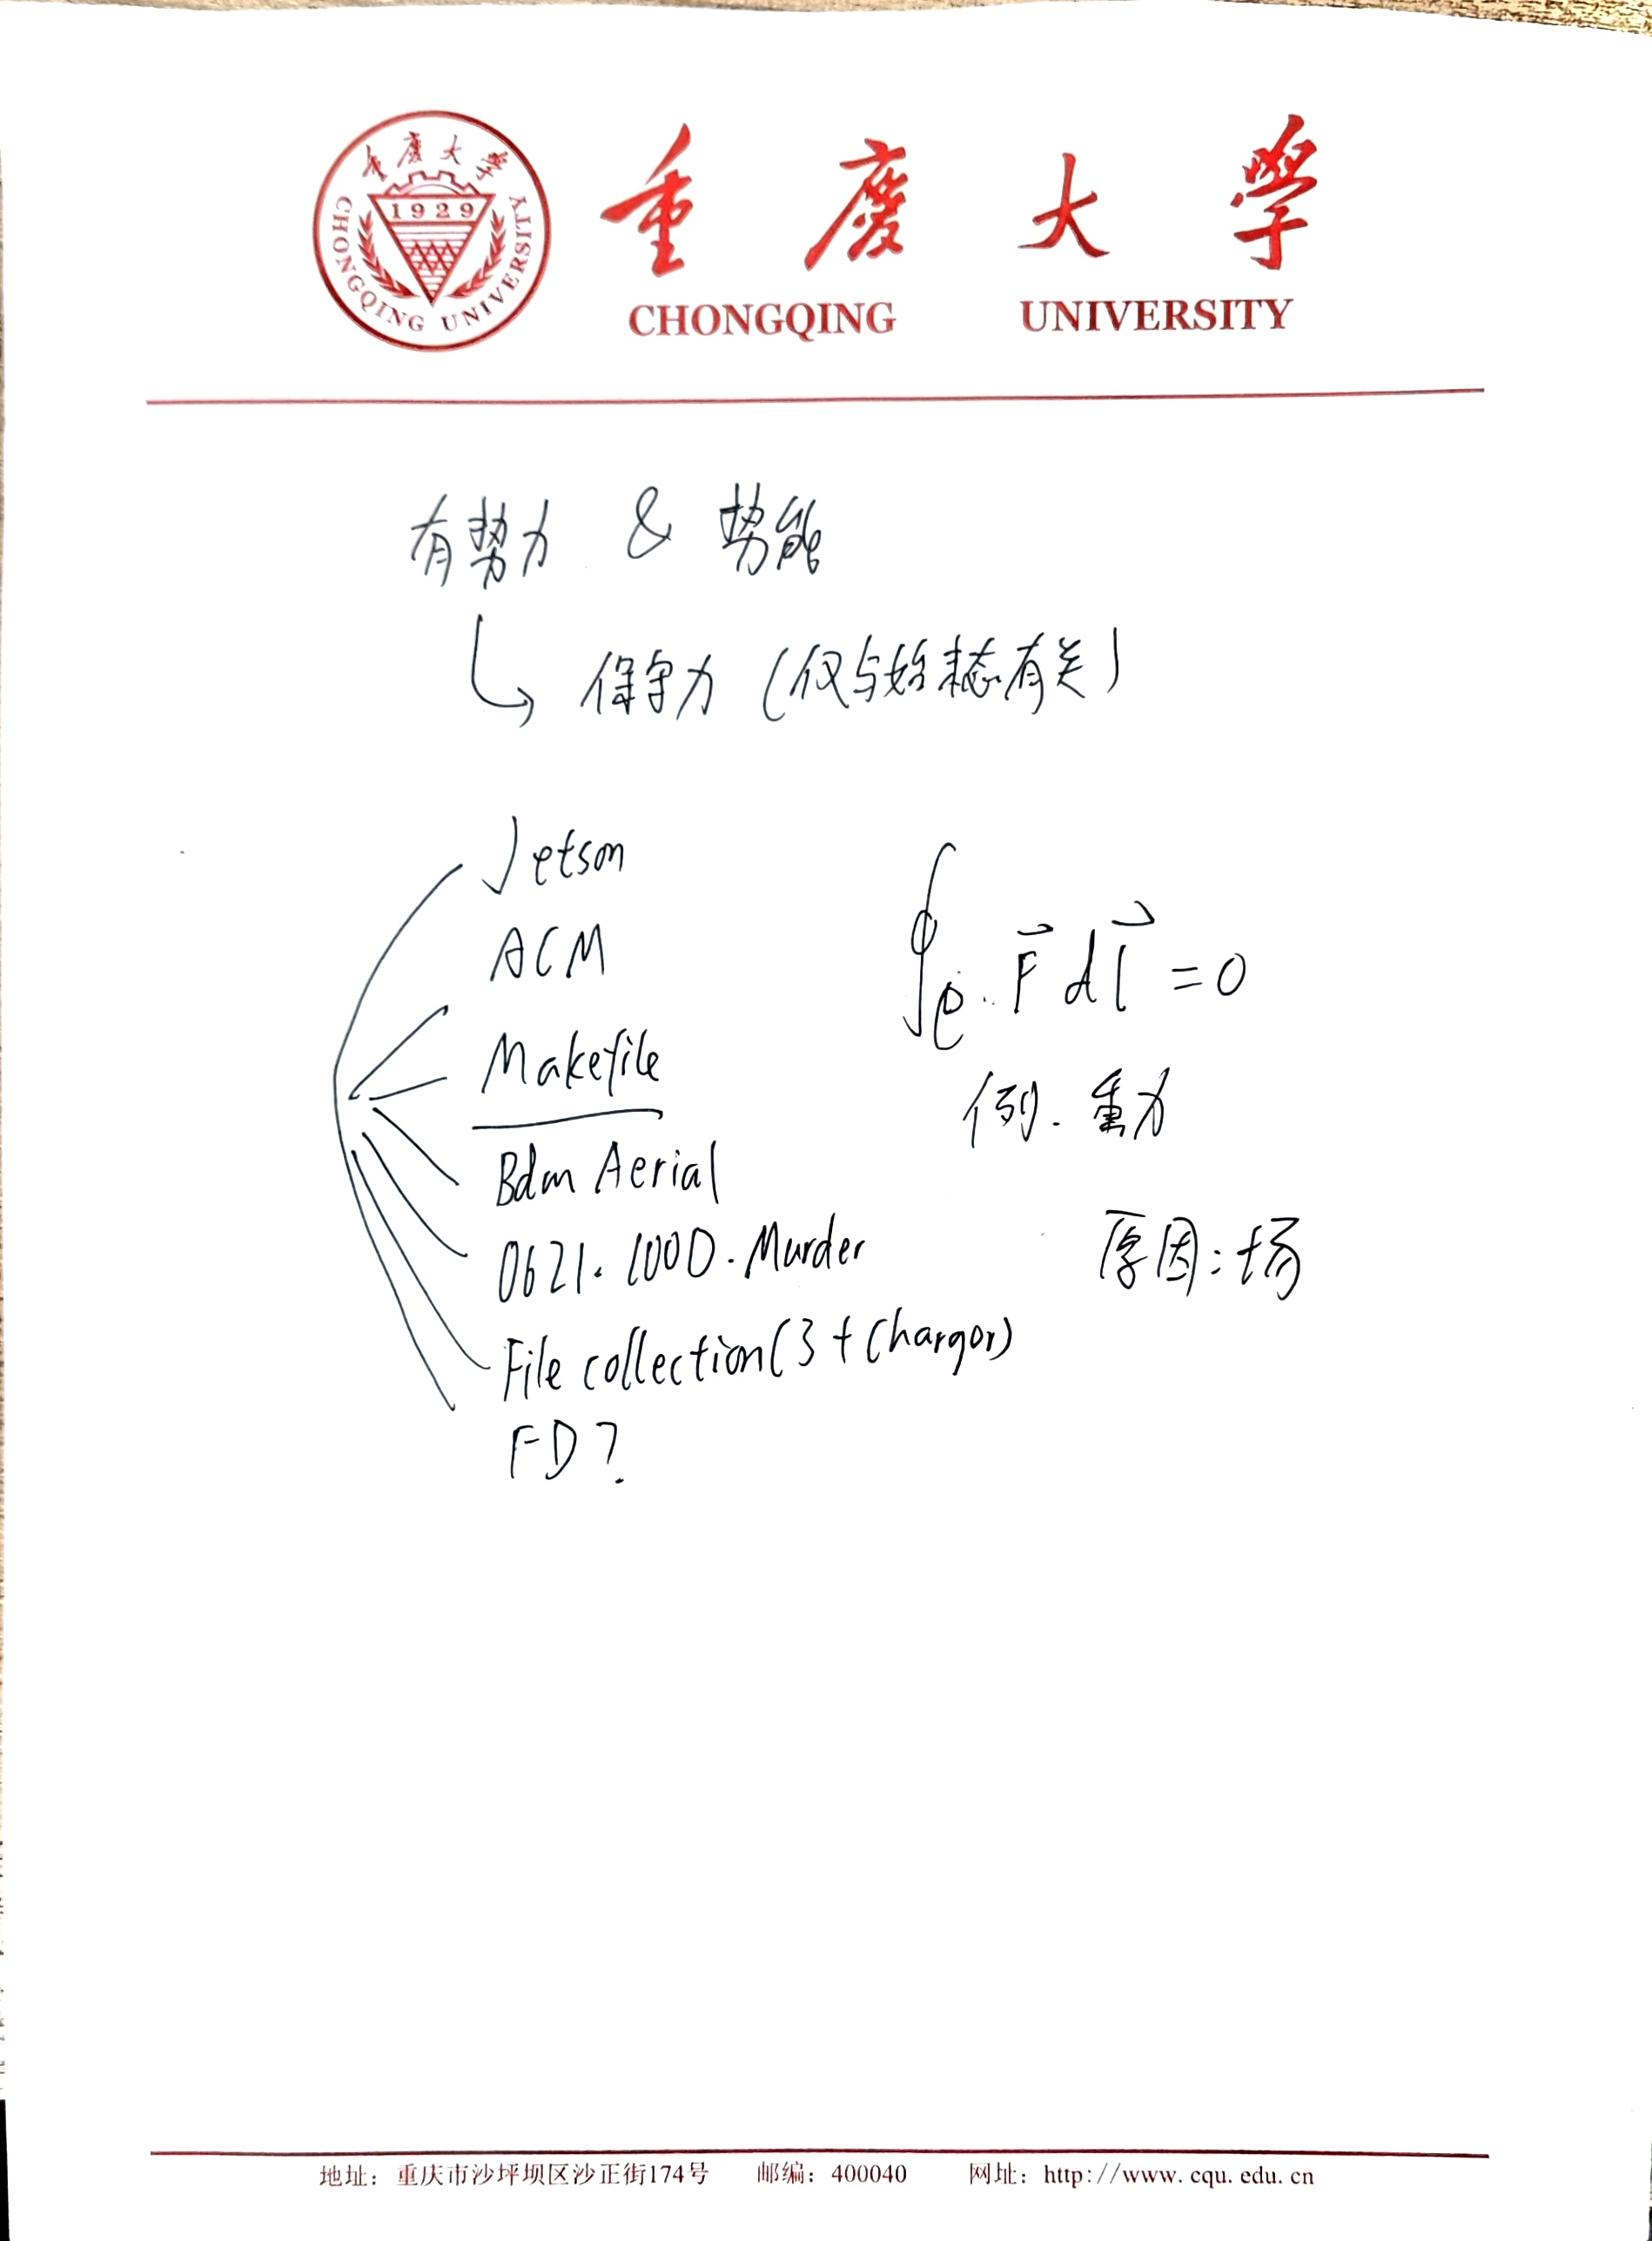 重庆大学
1929
CHONGQING UNIVERSITY
重慶大學
CHONGQING UNIVERSITY
有势力 & 势能
保守力 (仅与始末态有关)
Jetson
ACM
Makefile
Bdm Aerial
0621.100D.Murder
File collection(3+Chargor)
FD?
∮c F⃗ dl⃗ = 0
例.重力
原因:场
地址：重庆市沙坪坝区沙正街174号 邮编：400040 网址：http://www.cqu.edu.cn